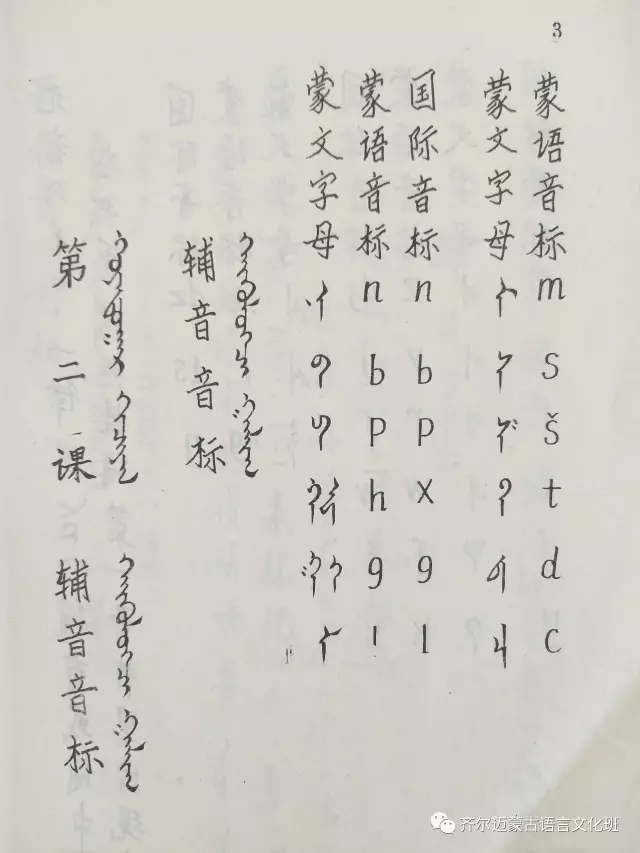 3
第二课 辅音音标
辅音音标
蒙文字母 ᠨ ᠪ ᠫ ᠬ ᠭ ᠯ
蒙语音标 n b p h g l
国际音标 n b p x g l
蒙文字母 ᠮ ᠰ ᠱ ᠲ ᠳ ᠴ
蒙语音标 m s š t d c
齐尔迈蒙古语言文化班